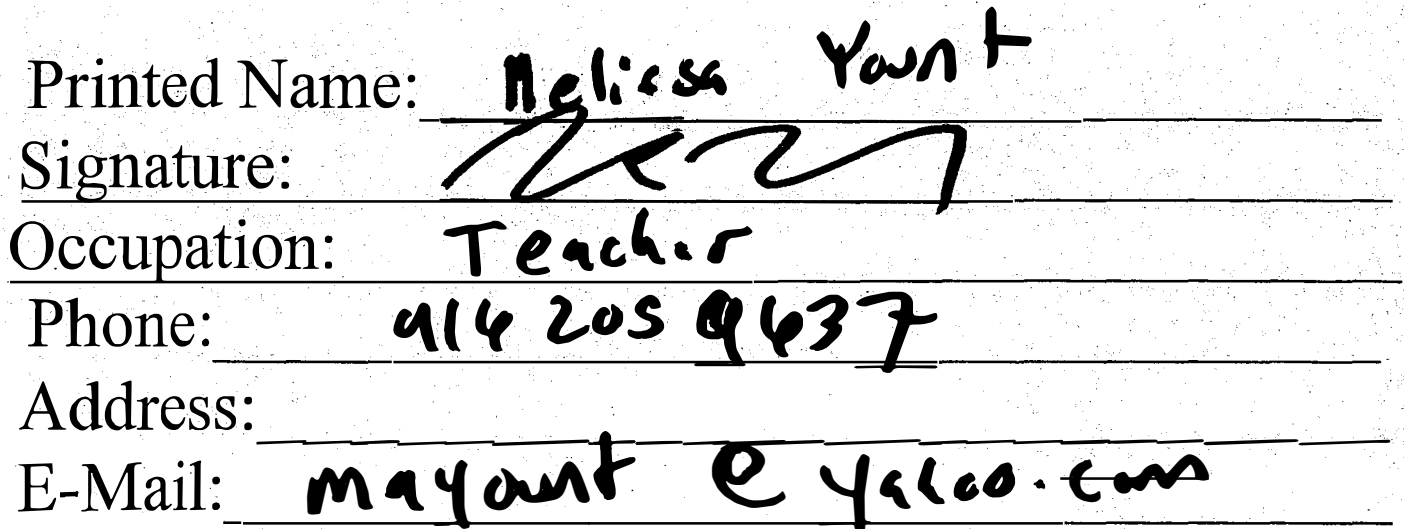 Printed Name: Melissa Yount
Signature:
Occupation: Teacher
Phone: 916 205 9637
Address:
E-Mail: mayount@yahoo.com